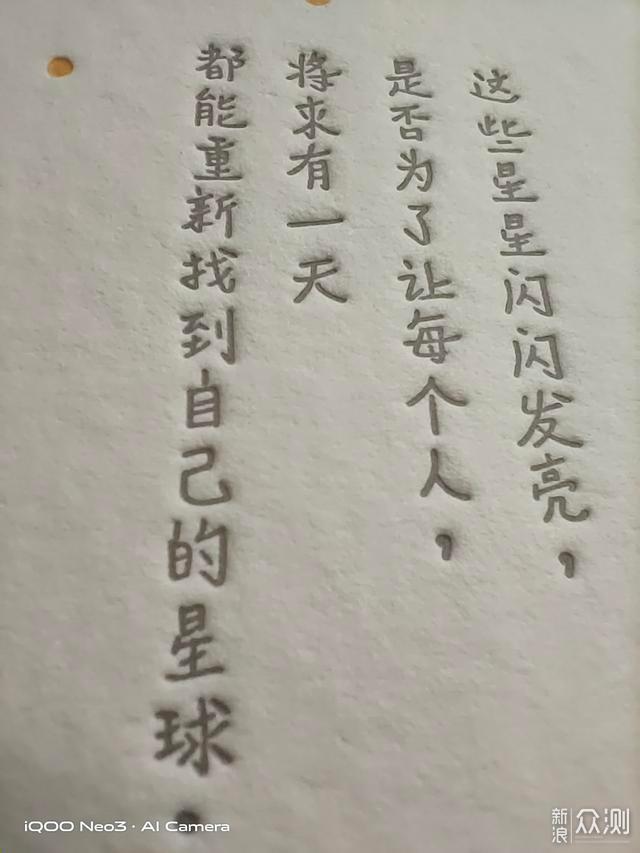 这些星星闪闪发亮，
是否为了让每个人，
将来有一天
都能重新找到自己的星球。
iQOO Neo3 · AI Camera
新浪众测